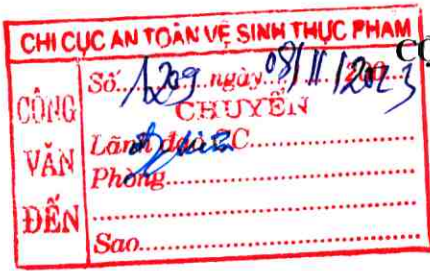 CHI CỤC AN TOÀN VỆ SINH THỰC PHẨM
CỘNG
CÔNG VĂN ĐẾN
Số 1209 ngày 08/11/2023
CHUYỂN
Lãnh đạo C
Phòng
Sao